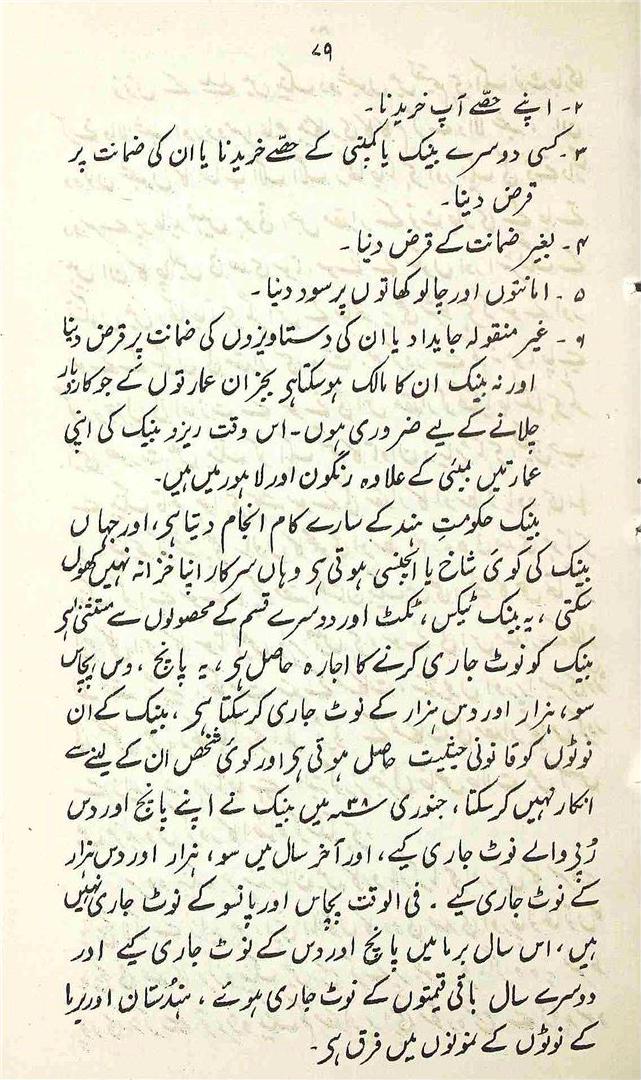 ۷۹
۲۔ اپنے حصّے آپ خریدنا۔
۳۔ کسی دوسرے بینک یا کمپنی کے حصّے خریدنا یا ان کی ضمانت پر
قرض دینا۔
۴۔ بغیر ضمانت کے قرض دینا۔
۵۔ امانتوں اور چالو کھاتوں پر سود دینا۔
۶۔ غیر منقولہ جایداد یا ان کی دستاویزوں کی ضمانت پر قرض دینا
اور نہ بینک ان کا مالک ہوسکتا ہی بجز ان عمارتوں کے جو کاروبار
چلانے کے لیے ضروری ہوں۔ اس وقت رزرو بینک کی اپنی
عمارتیں بمبئی کے علاوہ رنگون اور لاہور میں ہیں۔
بینک حکومتِ ہند کے سارے کام انجام دیتا ہی، اور جہاں
بینک کی کوئی شاخ یا ایجنسی ہوتی ہی وہاں سرکار اپنا خزانہ نہیں کھول
سکتی، یہ بینک ٹیکس، ٹکٹ اور دوسرے قسم کے محصولوں سے مستثنیٰ ہی
بینک کو نوٹ جاری کرنے کا اجارہ حاصل ہی، یہ پانچ، دس، پچاس
سو، ہزار اور دس ہزار کے نوٹ جاری کرسکتا ہی، بینک کے ان
نوٹوں کو قانونی حیثیت حاصل ہوتی ہی اور کوئی شخص ان کے لینے سے
انکار نہیں کرسکتا، جنوری ۳۸ء میں بینک نے اپنے پانچ اور دس
رُپے والے نوٹ جاری کیے، اور آخر سال میں سو، ہزار اور دس ہزار
کے نوٹ جاری کیے۔ فی الوقت پچاس اور پانسو کے نوٹ جاری نہیں
ہیں، اس سال برما میں پانچ اور دس کے نوٹ جاری کیے اور
دوسرے سال باقی قیمتوں کے نوٹ جاری ہوئے، ہندُستان اور برما
کے نوٹوں کے نمونوں میں فرق ہی۔